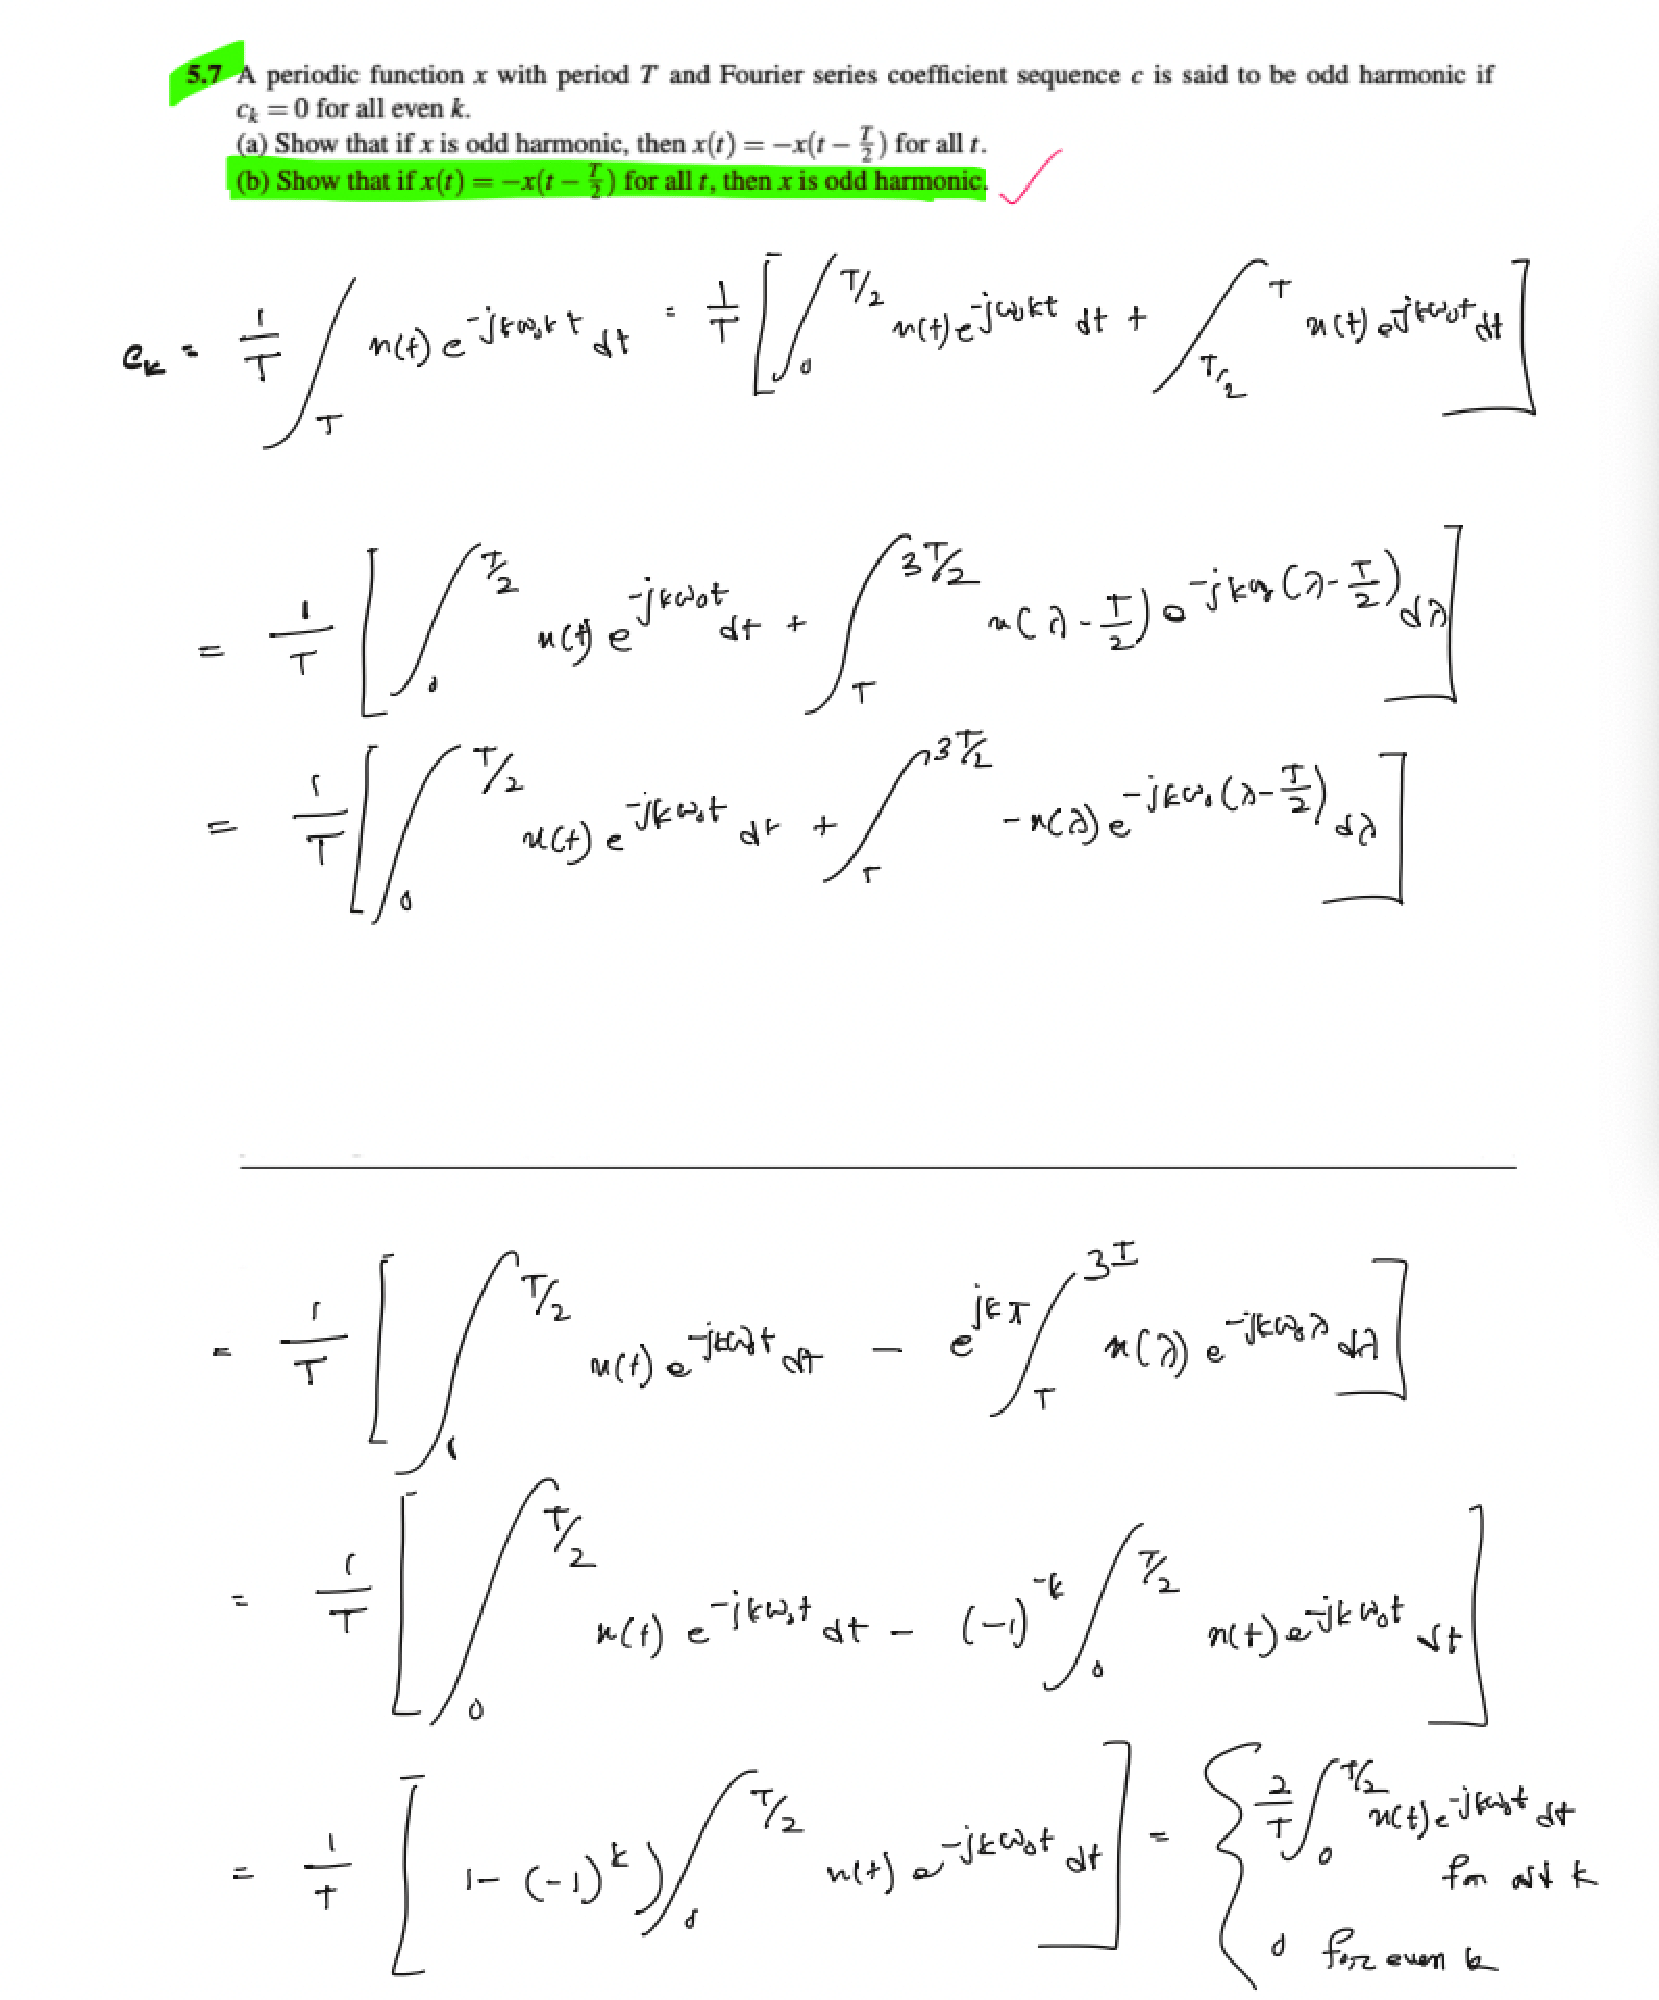 5.7 A periodic function x with period T and Fourier series coefficient sequence c is said to be odd harmonic if
cₖ = 0 for all even k.
(a) Show that if x is odd harmonic, then x(t) = −x(t − T/2) for all t.
(b) Show that if x(t) = −x(t − T/2) for all t, then x is odd harmonic.
cₖ = 1/T ∫_T x(t) e^{-jkω₀kt} dt = 1/T [ ∫_0^{T/2} x(t) e^{-jω₀kt} dt + ∫_{T/2}^{T} x(t) e^{-jkω₀t} dt ]
= 1/T [ ∫_0^{T/2} x(t) e^{-jkω₀t} dt + ∫_T^{3T/2} x(λ - T/2) e^{-jkω₀(λ - T/2)} dλ ]
= 1/T [ ∫_0^{T/2} x(t) e^{-jkω₀t} dt + ∫_T^{3T/2} -x(λ) e^{-jkω₀(λ - T/2)} dλ ]
= 1/T [ ∫^{T/2} x(t) e^{-jkω₀t} dt - e^{jkπ} ∫_T x(λ) e^{-jkω₀λ} dλ ]
= 1/T [ ∫_0^{T/2} x(t) e^{-jkω₀t} dt - (-1)^{-k} ∫_0^{T/2} x(t) e^{-jkω₀t} dt ]
= 1/T [ 1 - (-1)^k ) ∫_0^{T/2} x(t) e^{-jkω₀t} dt ] = { 2/T ∫_0^{T/2} x(t) e^{-jkω₀t} dt
for odd k
0 for even k